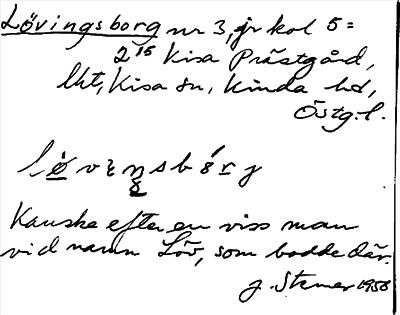 Lövingsborg nr 3, jr kol 5 =
2 15 Kisa Prästgård,
lht, Kisa sn, Kinda hd,
Östg. l.
Kanske efter en viss man
vid namn Löv, som bodde där.
J. Stemer 1956